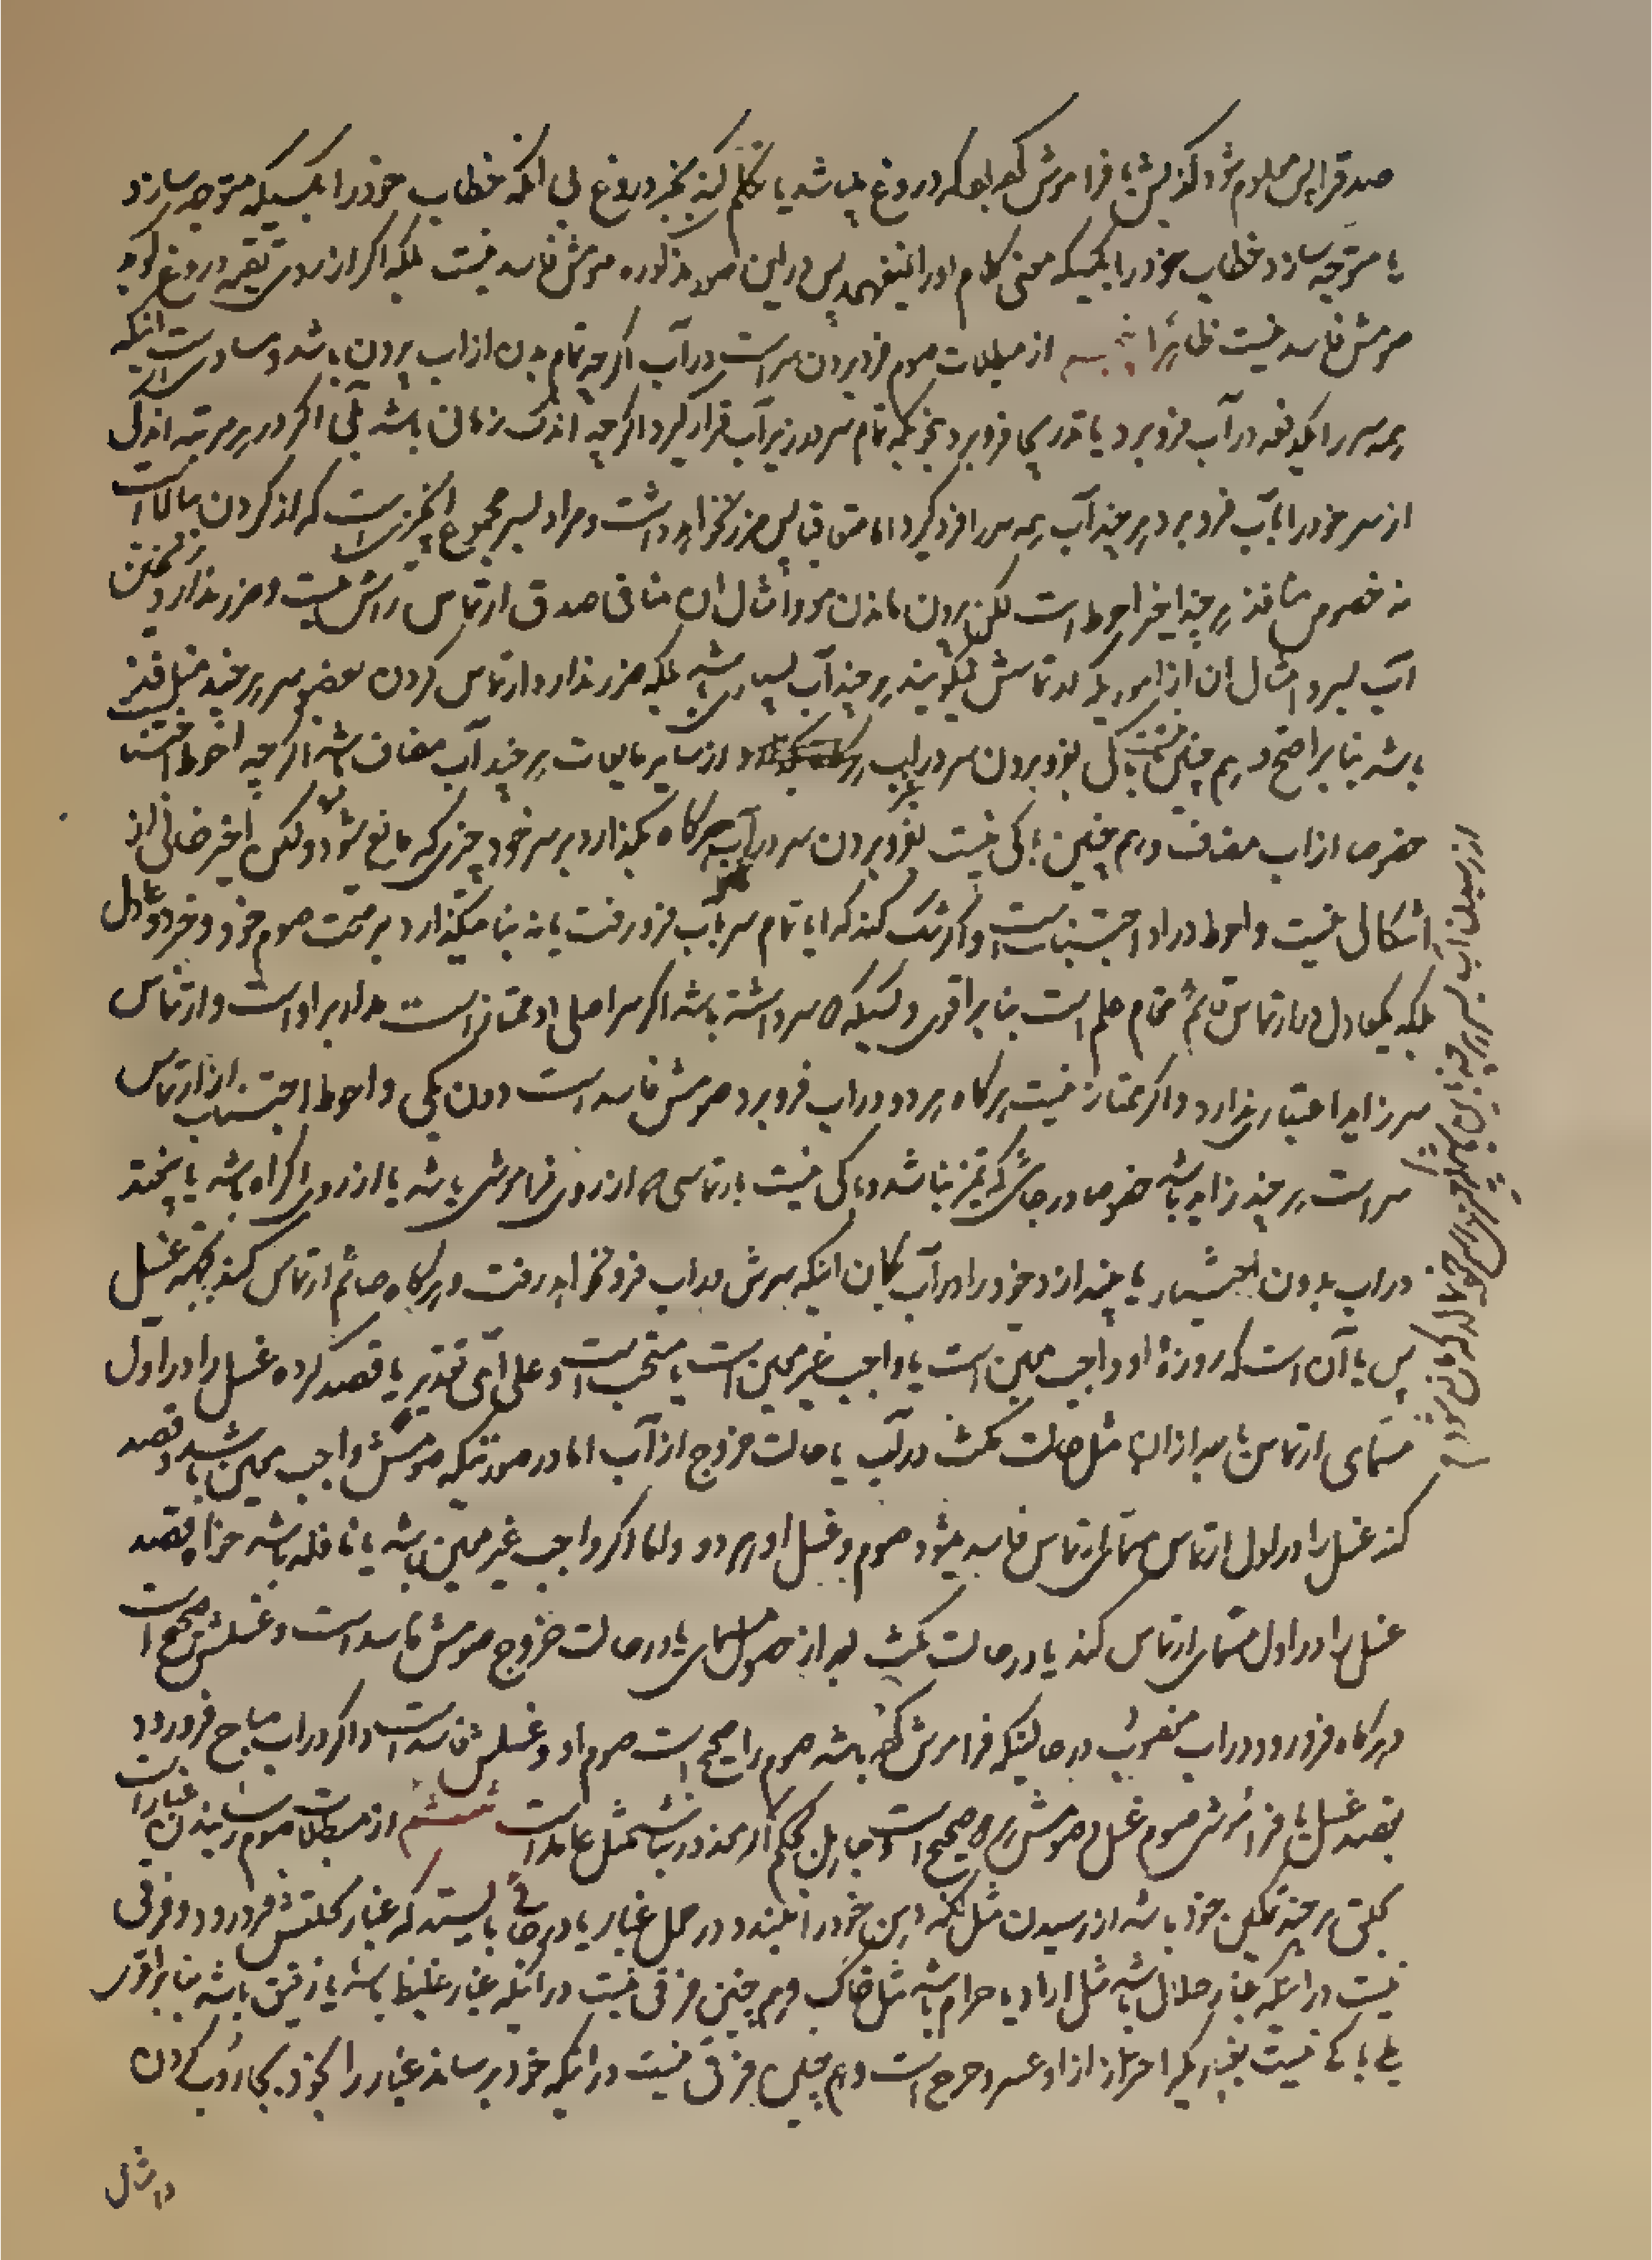 صدق را پس معلوم شود کذبش یا فراموش کند که دروغ میباشد یا تکلم کند بخبر دروغ بی آنکه خطاب خود را بکسیکه متوجه سازد
یا متوجه سازد خطاب خود را بکسیکه معنی کلام او را نفهمد پس در این صور مذکوره صومش فاسد نیست بلکه اگر از روی تقیه دروغ گوید
صومش فاسد نیست ظاهرا پنجم از مبطلات صوم فرو بردن سر است در آب اگر چه تمام بدن از آب بیرون باشد و مساویست اینکه
همه سر را یکدفعه در آب فرو برد یا تدریجا فرو برد بنحویکه تمام سر در زیر آب قرار گیرد اگر چه اندک زمانی باشد بلی اگر در هر مرتبه اندکی
از سر خود را بآب فرو برد هر چند آب همه سر را فرو گیرد اما متعاقبا پس ضرر نخواهد داشت و مراد بسر مجموع آنچیزی است که از گردن ببالا است
نه خصوص منافذ هر چند اخیر احوط است لکن بیرون ماندن مو و امثال آن منافی صدق ارتماس راس نیست و ضرر ندارد ریختن
آب بسر و امثال آن از اموریکه ارتماسش نگویند هر چند آب بسیاری باشد بلکه ضرر ندارد ارتماس کردن بعض سر هر چند مشتمل منافذ
باشد بنا بر اصح و هم چنین باکی نیست بفرو بردن سر در غیر آب از سایر مایعات هر چند آب مضاف باشد اگر چه احوط اجتناب است
خصوصا از آب مضاف و هم چنین باکی نیست بفرو بردن سر در آب هرگاه بگذارد بر سر خود چیزی که مانع شود و لکن اخیر خالی از
اشکالی نیست و احوط در او اجتنابست و اگر شک کند که آیا تمام سر بآب فرو رفت یا نه بنا میگذارد بر صحت صوم خود و خبر دو عادل
بلکه یکعادل در ارتماس قائم مقام علم است بنا بر اقوی و کسیکه ۲ سر داشته باشد اگر سر اصلی او ممتاز است مدار بر اوست و ارتماس
سر زاید اعتباری ندارد و اگر ممتاز نیست هرگاه هر دو در آب فرو برد صومش فاسد است دون یکی و احوط اجتناب از ارتماس
سر است هر چند زاید باشد خصوصا در جائیکه تمیز نباشد و باکی نیست بارتماسی که از روی فراموشی باشد یا از روی اکراه باشد یا بیفتد
در آب بدون اختیار یا بیندازد خود را در آب بگمان اینکه سرش در آب فرو نخواهد رفت و هرگاه صائم ارتماس کند بقصد غسل
پس یا آن است که روزه او واجب معین است یا واجب غیر معین است یا مستحب است و علی ای تقدیر یا قصد کرده غسل را در اول
مسمای ارتماس یا بعد از آن مثل حالت مکث در آب یا حالت خروج از آب اما در صورتیکه صومش واجب معین باشد و قصد
کند غسل را در اول ارتماس بمسمای ارتماس فاسد میشود صوم و غسل او هر دو و اما اگر واجب غیر معین باشد یا نافله باشد خواه قصد
غسل را در اول مسمای ارتماس کند یا در حالت مکث بعد از حصول مسمای یا در حالت خروج صومش فاسد است و غسلش صحیح است
و هرگاه فرو رود در آب مغصوب در حالتیکه فراموش کرده باشد صوم را صحیح است صوم او و غسلش فاسد است و اگر در آب مباح فرو رود
بقصد غسل با فراموشی صوم غسل و صومش هر ۲ صحیح است و جاهل بحکم اگر معذور نباشد مثل عامد است ششم از مبطلات صوم رسانیدن غبار است
بحلق هر چند بتمکین خود باشد از رسیدن مثل آنکه دهن خود را نبندد در محل غبار یا در جائی بایستد که غبار بحلقش فرو رود و فرقی
نیست در اینکه غبار حلال باشد مثل آرد یا حرام باشد مثل خاک و هم چنین فرقی نیست در آنکه غبار غلیظ باشد یا رقیق باشد بنا بر اقوی
بلی باکی نیست بغباریکه احتراز از او عسر و حرج است و هم چنین فرقی نیست در آنکه خود برساند غبار را بخود بجاروب کردن
و امثال